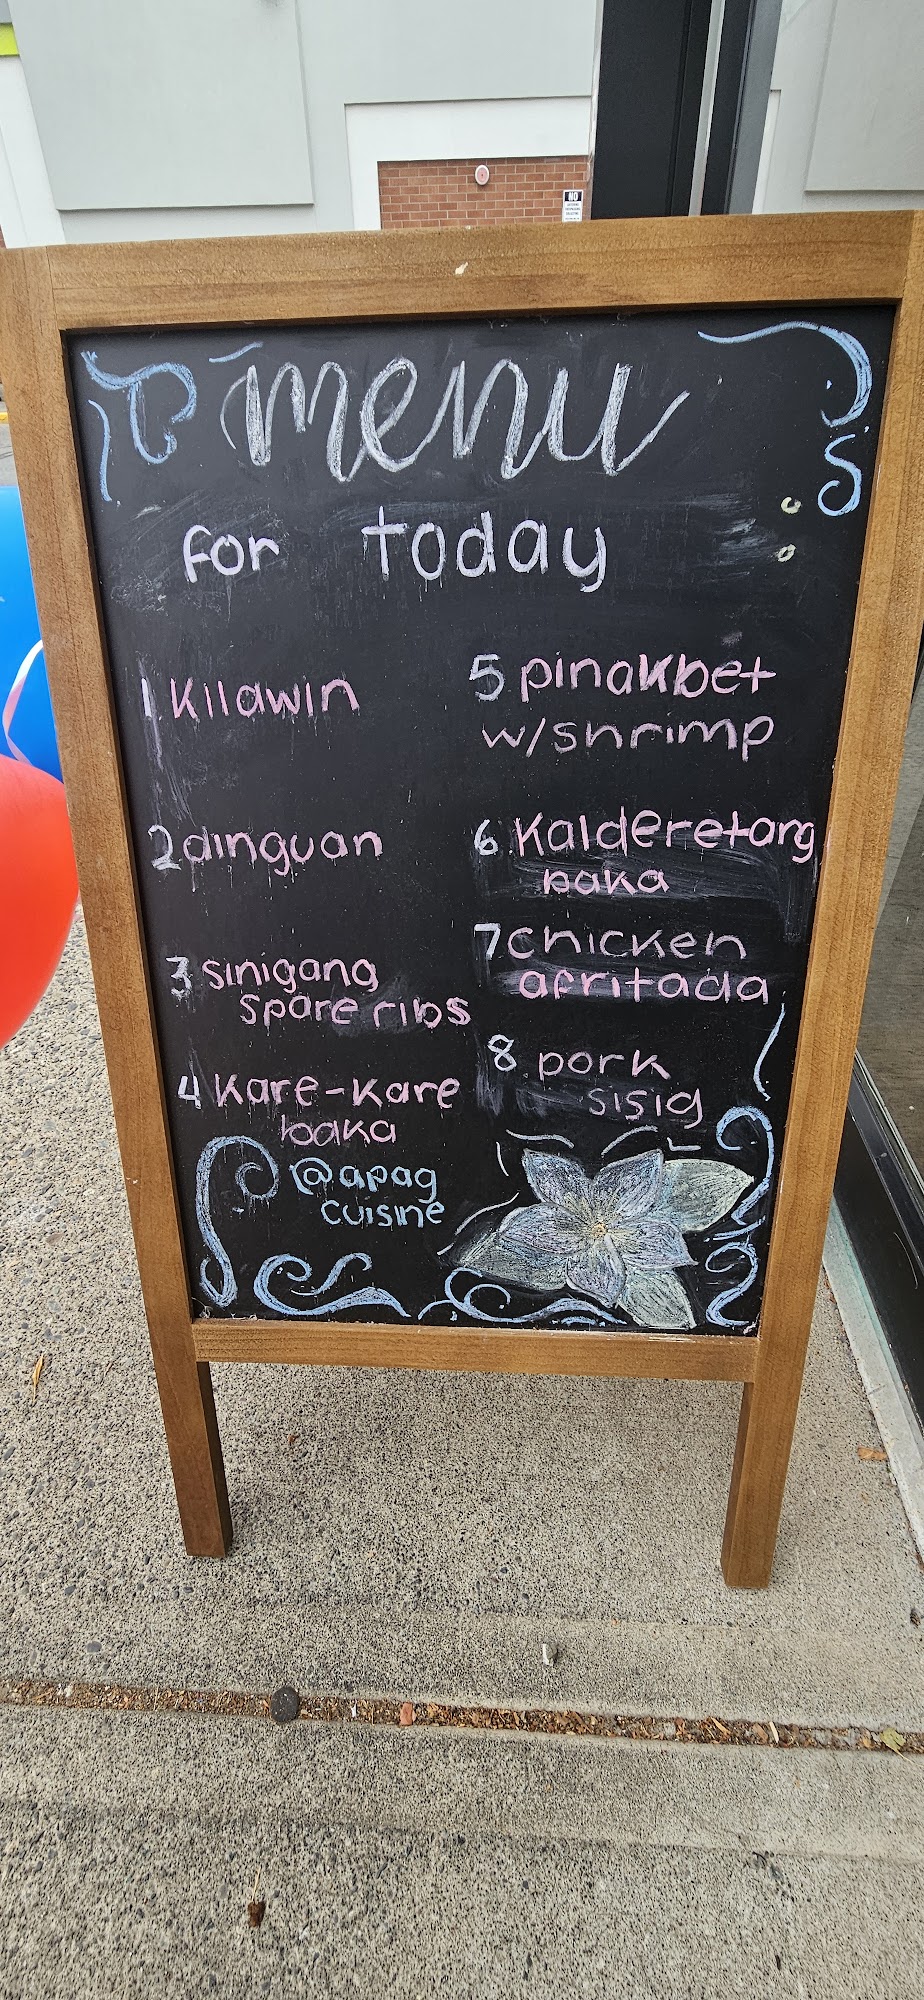 menu
for today
1 Kilawin
2 dinguan
3 sinigang
spare ribs
4 Kare-Kare
baka
@apag
cuisine
5 pinakbet
w/shrimp
6 Kalderetang
baka
7 chicken
afritada
8 pork
sisig
NO